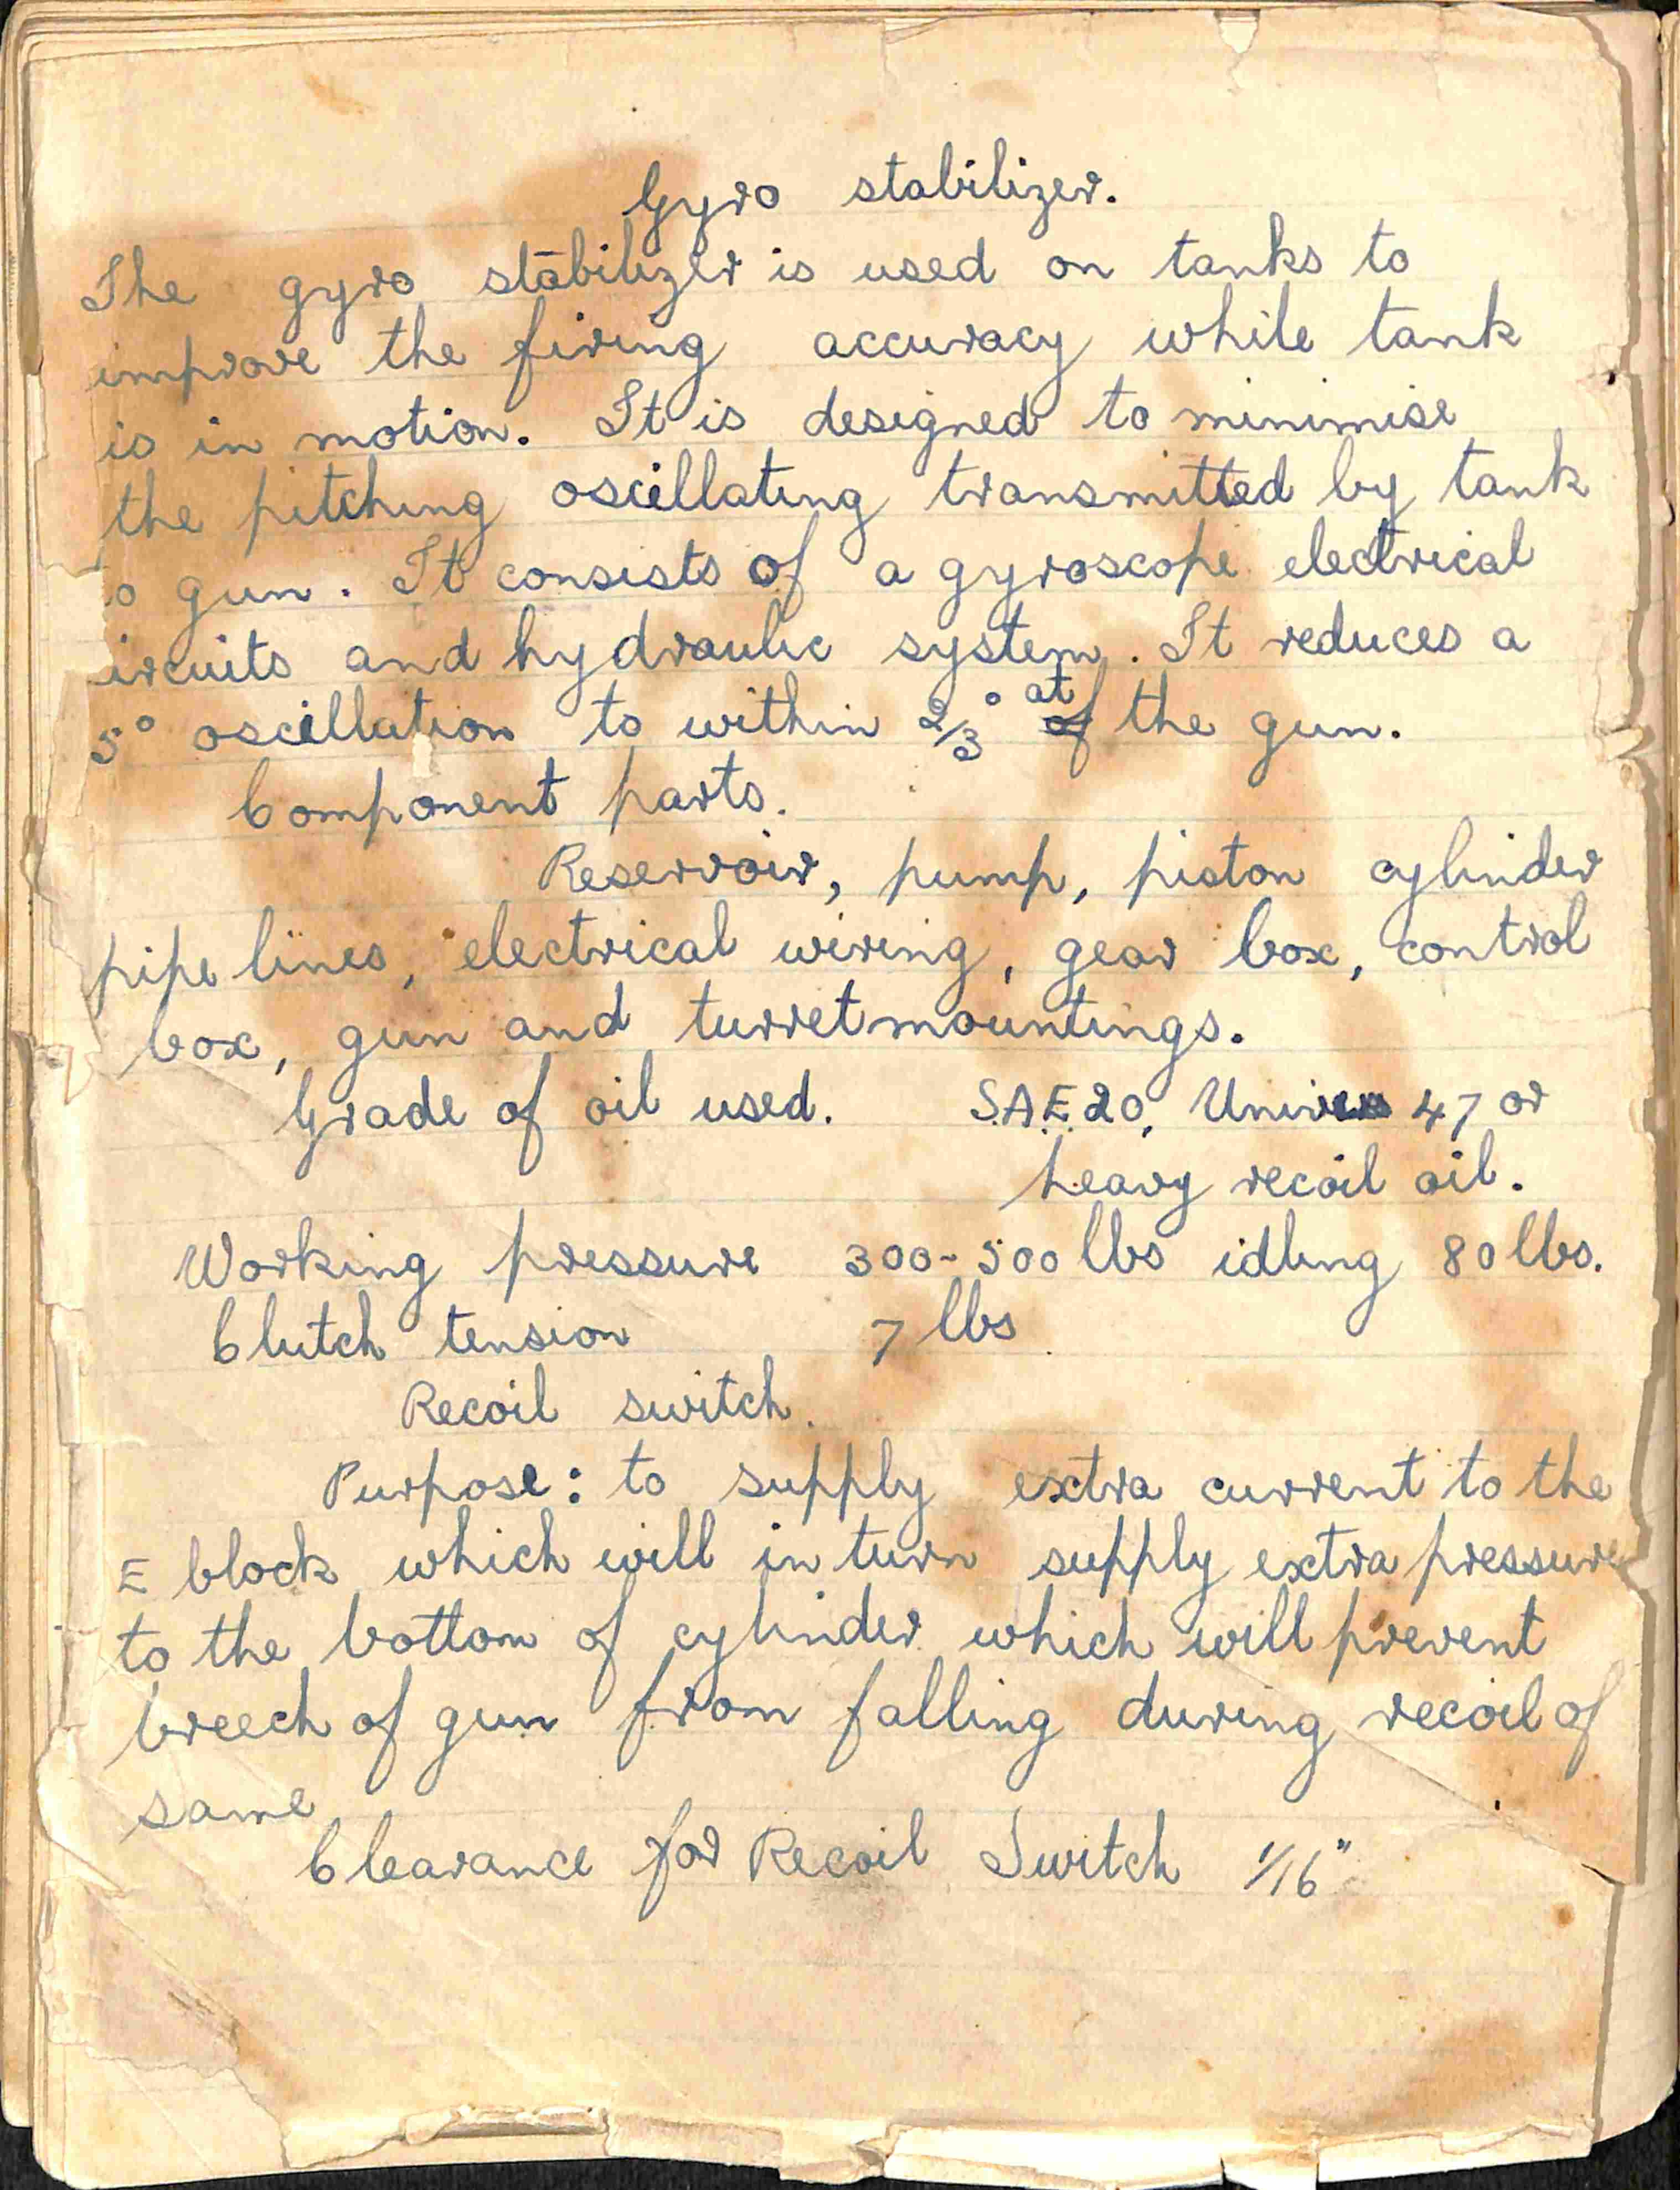 Gyro stabilizer.
The gyro stabilizer is used on tanks to
improve the firing accuracy while tank
is in motion. It is designed to minimise
the pitching oscillating transmitted by tank
o gun. It consists of a gyroscope electrical
ircuits and hydraulic system. It reduces a
5° oscillation to within 2/3° at of the gun.
Component parts.
Reservoir, pump, piston cylinder
pipe lines, electrical wiring, gear box, control
box, gun and turret mountings.
Grade of oil used. SAE 20, 47 or
heavy recoil oil.
Working pressure 300-500 lbs idling 80 lbs.
Clutch tension 7 lbs
Recoil switch.
Purpose: to supply extra current to the
E block which will in turn supply extra pressure
to the bottom of cylinder which will prevent
breech of gun from falling during recoil of
same
Clearance for Recoil Switch 1/16"